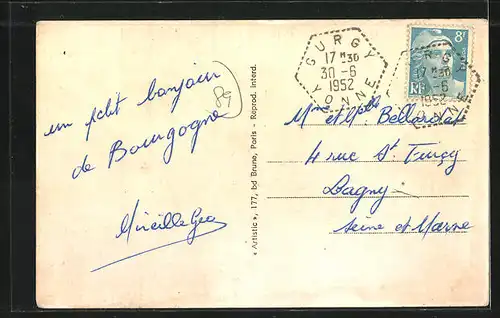 un petit bonjour
de Bourgogne
89
« Artistic », 177, bd Brune, Paris - Reprod. interd.
GURGY
17 H 30
30 - 6
1952
YONNE
8F
RF
GURGY
17 H 30
- 6
1952
YONNE
Mme et
4 rue St
Lagny
Seine et Marne